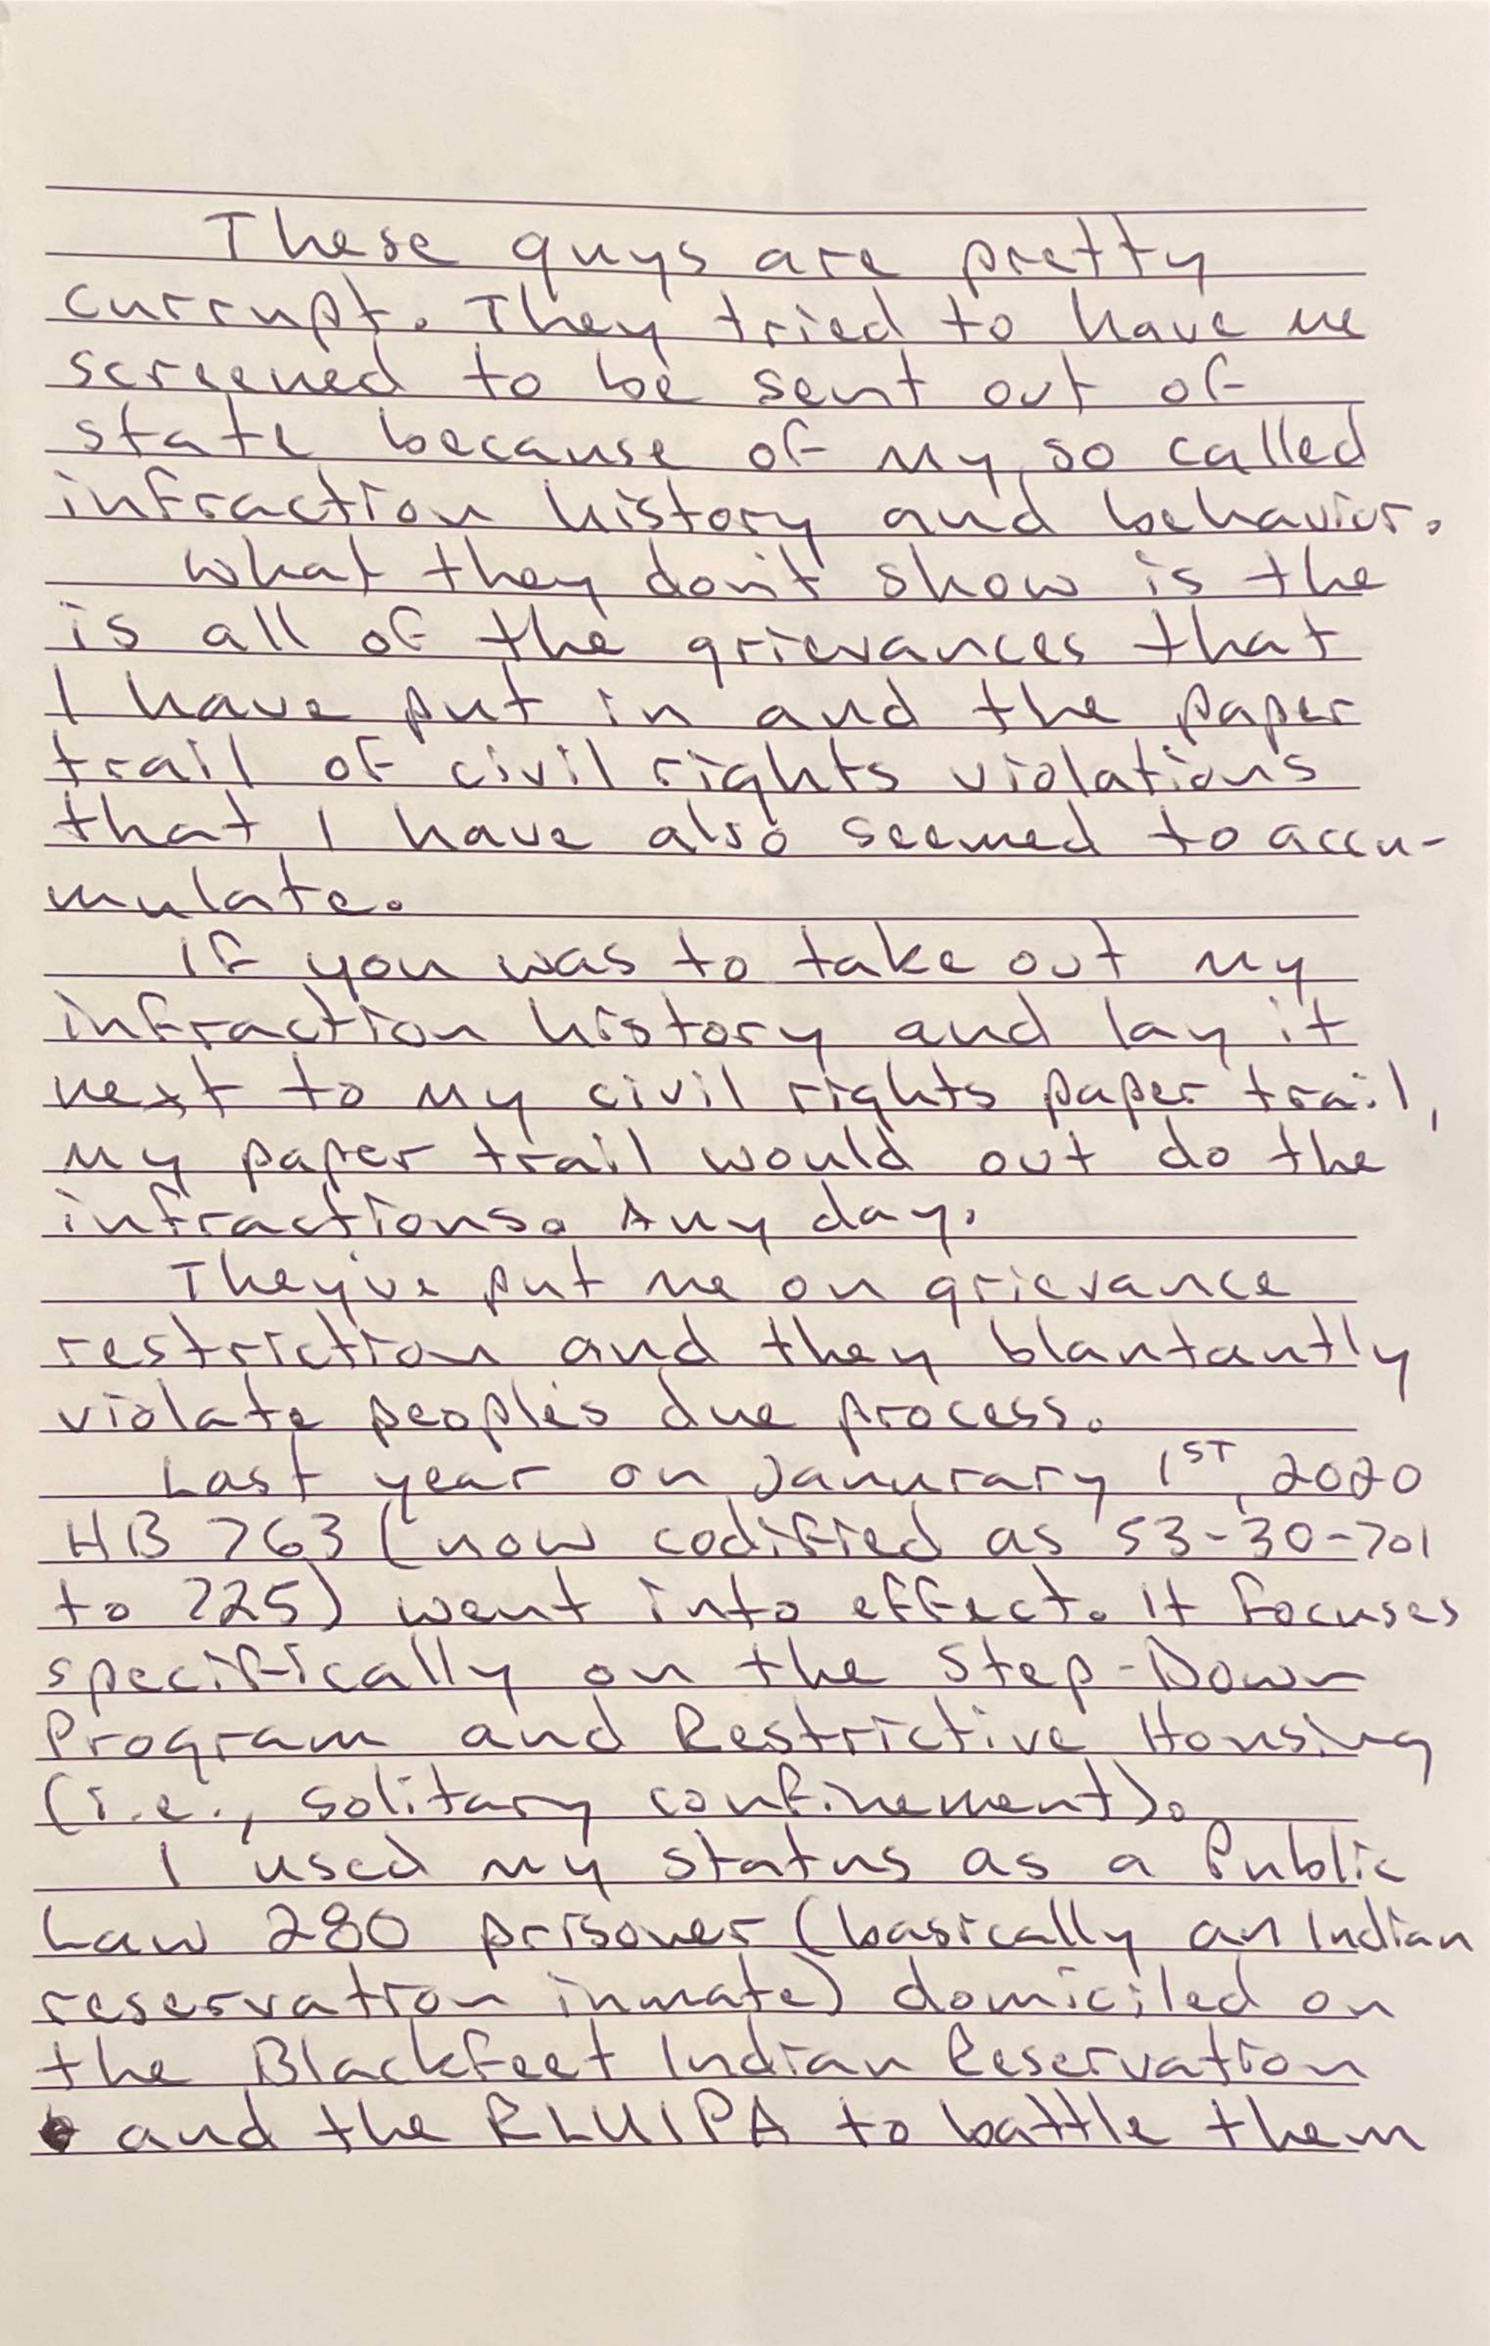 These guys are pretty
currupt. They tried to have me
screened to be sent out of
state because of my so called
infraction history and behavior.
What they don't show is the
is all of the grievances that
I have put in and the paper
trail of civil rights violations
that I have also seemed to accu-
mulate.
If you was to take out my
infraction history and lay it
next to my civil rights paper trail,
my paper trail would out do the
infractions. Any day.
They've put me on grievance
restriction and they blantantly
violate people's due process.
Last year on Janurary 1ST, 2020
HB 763 (now codified as 53-30-701
to 725) went into effect. It focuses
specifically on the Step-Down
Program and Restrictive Housing
(i.e., solitary confinement).
I used my status as a Public
Law 280 prisoner (basically an Indian
reservation inmate) domiciled on
the Blackfeet Indian Reservation
and the RLUIPA to battle them